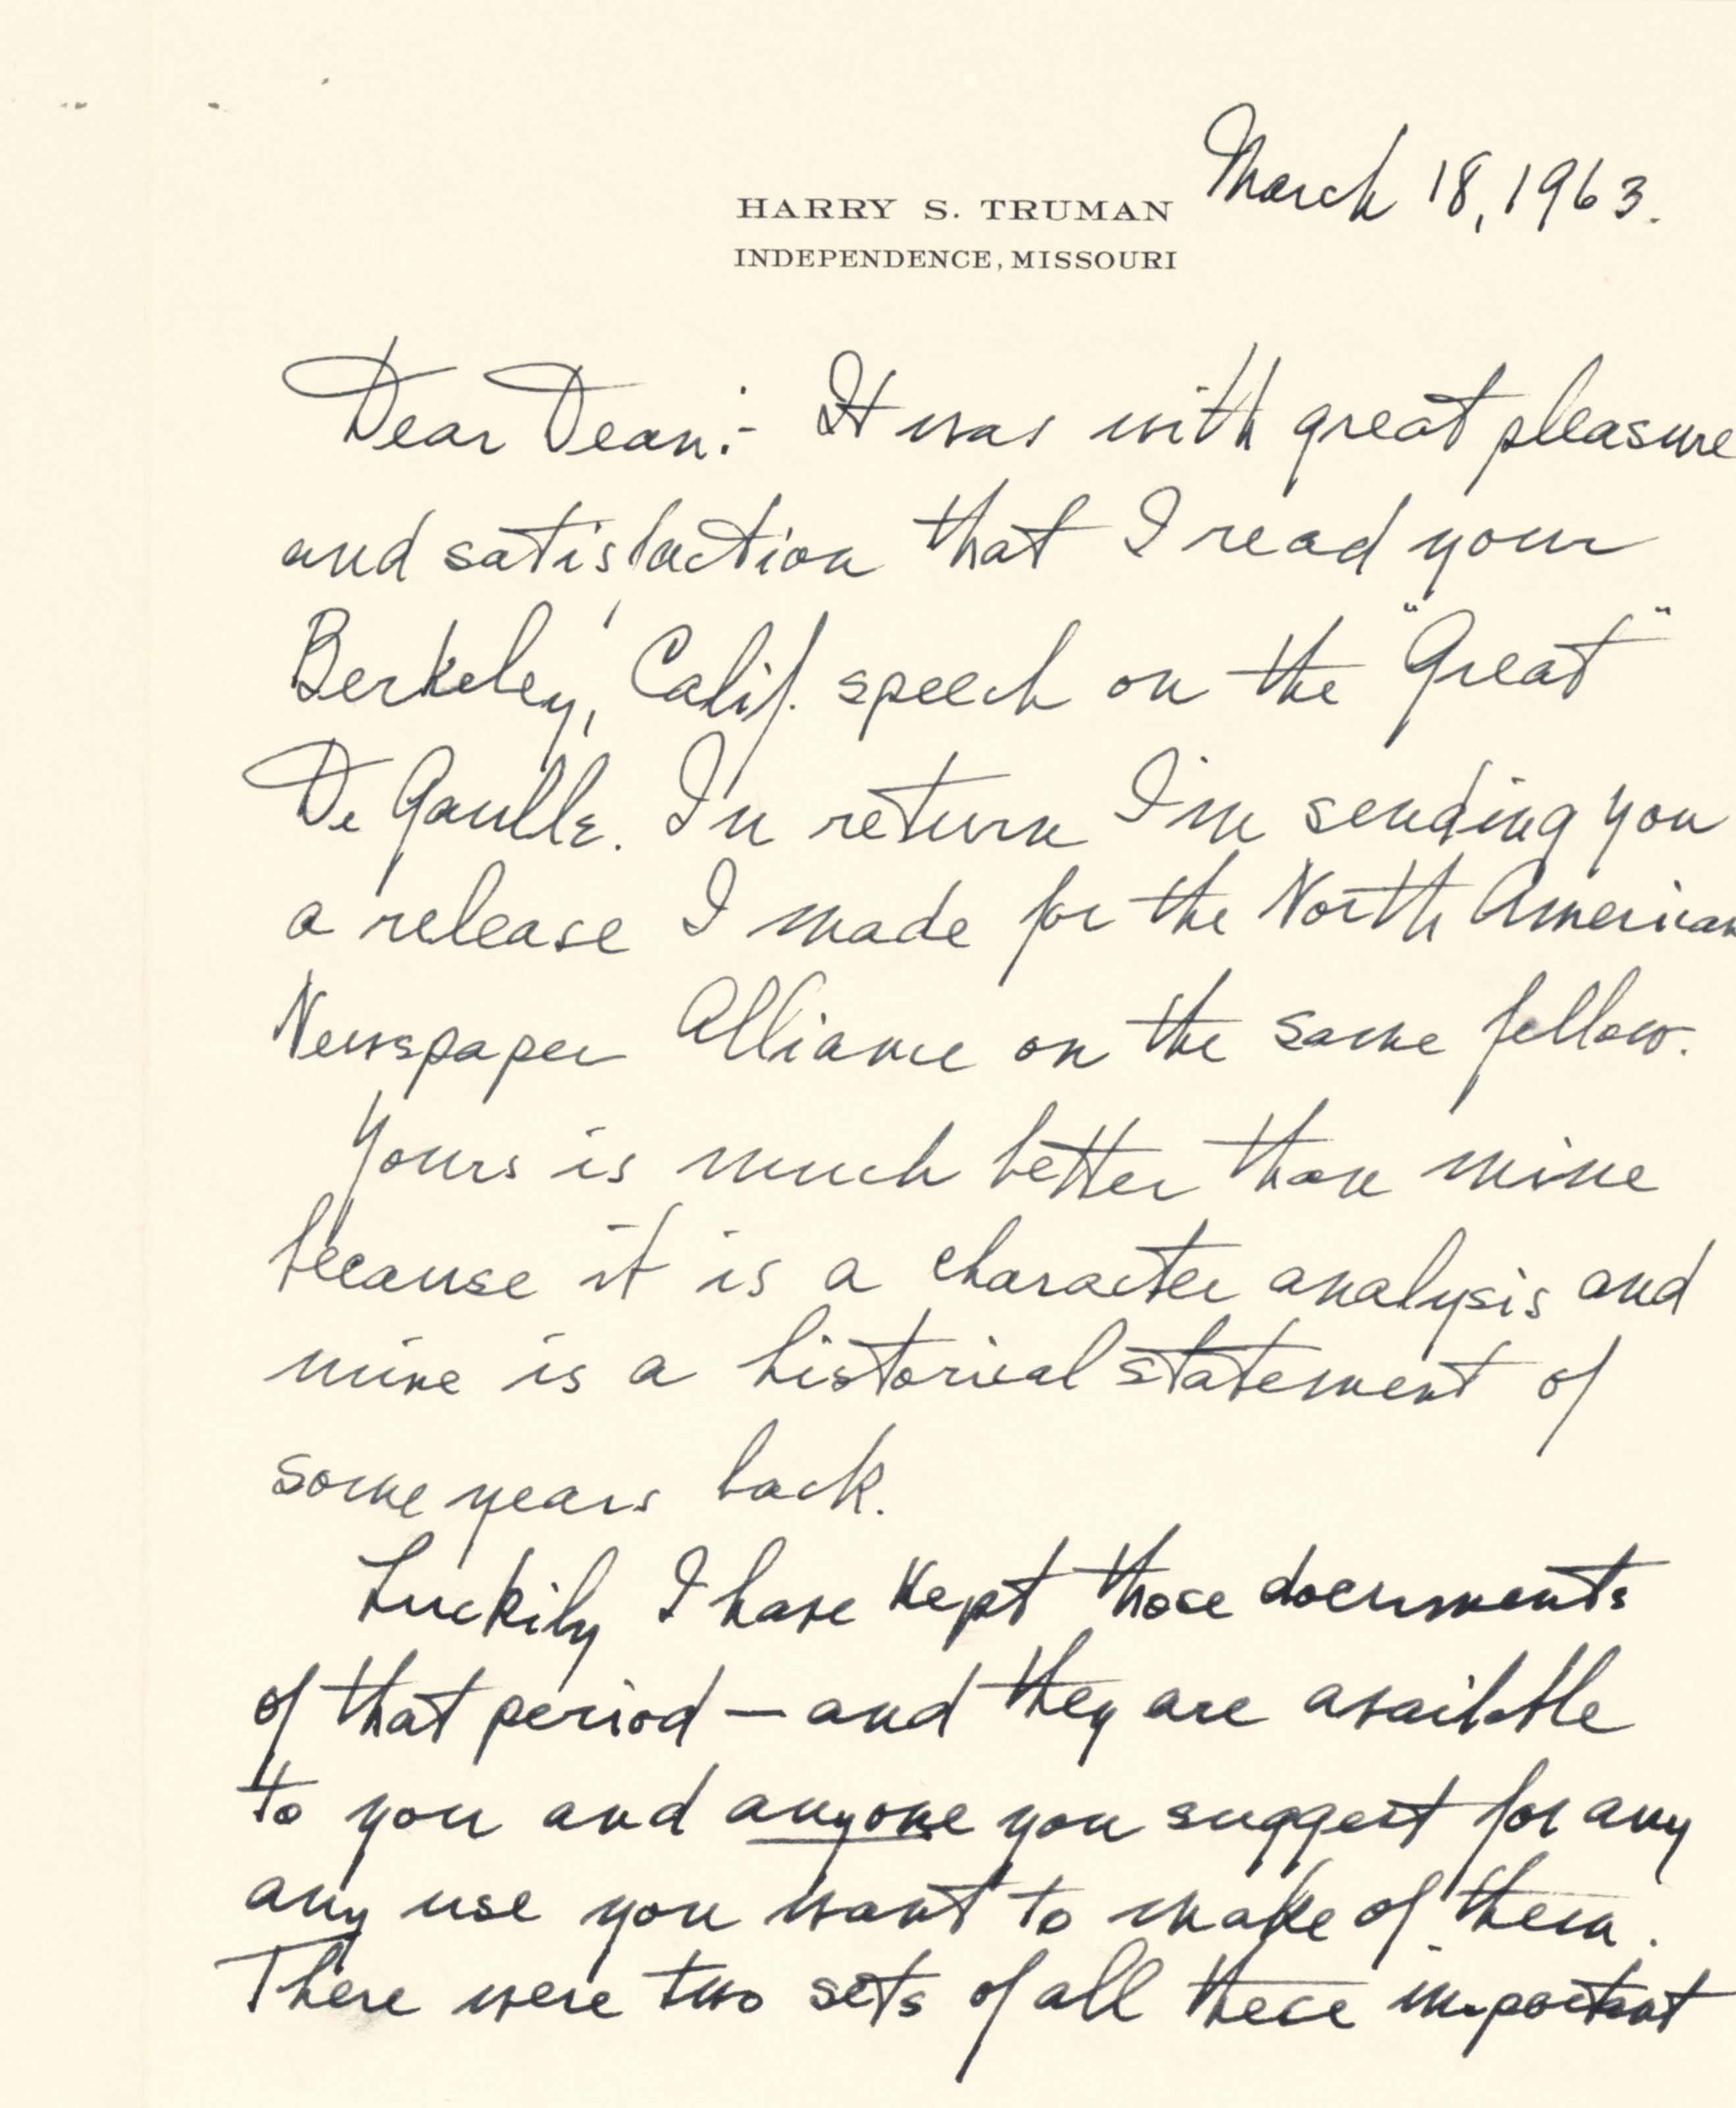 March 18, 1963.
HARRY S. TRUMAN
INDEPENDENCE, MISSOURI
Dear Dean:- It was with great pleasure
and satisfaction that I read your
Berkeley, Calif. speech on the "Great"
De Gaulle. In return I'm sending you
a release I made for the North American
Newspaper Alliance on the same fellow.
Yours is much better than mine
because it is a character analysis and
mine is a historical statement of
some years back.
Luckily I have kept those documents
of that period — and they are available
to you and anyone you suggest for any
any use you want to make of them.
There were two sets of all these important